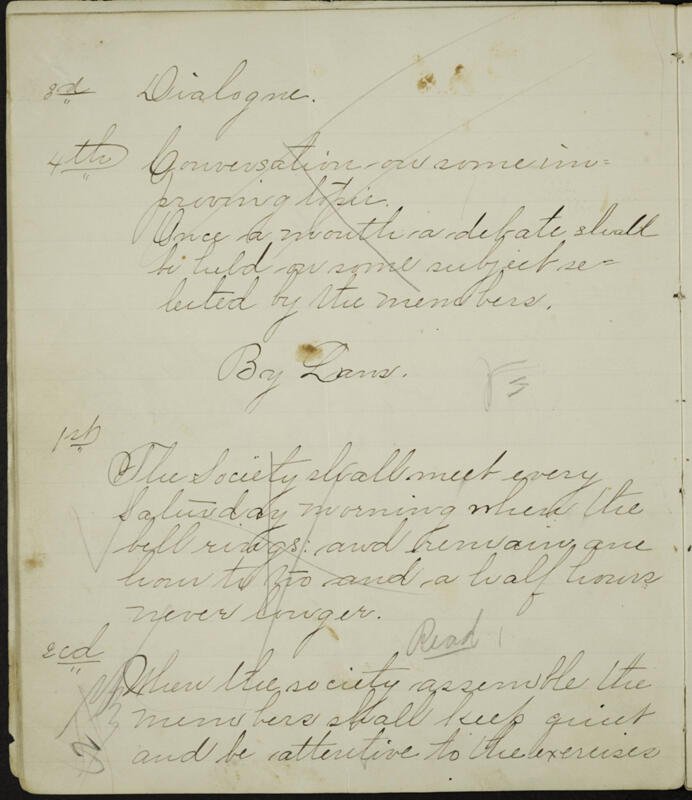 3d Dialogue.
4th Conversation on some im=
proving topic.
Once a month a debate shall
be held on some subject se=
lected by the members.
By Laws.
1st
The Society shall meet every
Saturday morning when the
bell rings: and remain one
hour to two and a half hours
never longer.
Read
2cd
When the society assemble the
members shall keep quiet
and be attentive to the exercises